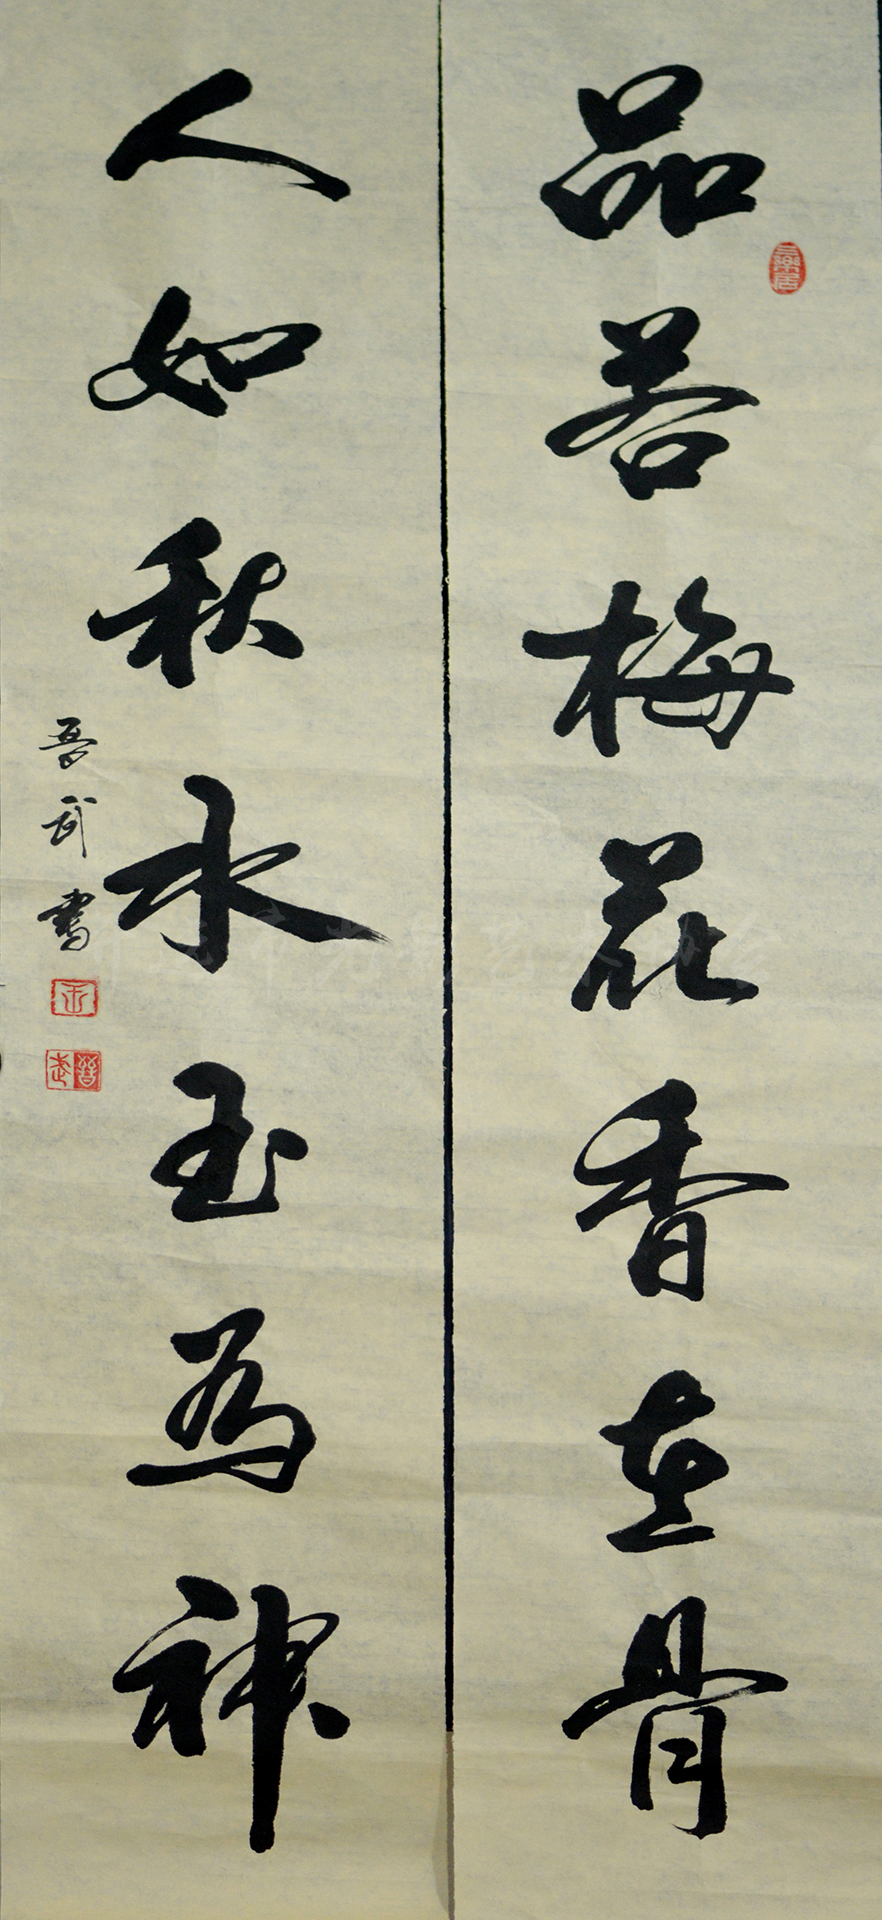 品若梅花香在骨
人如秋水玉為神
晋武書